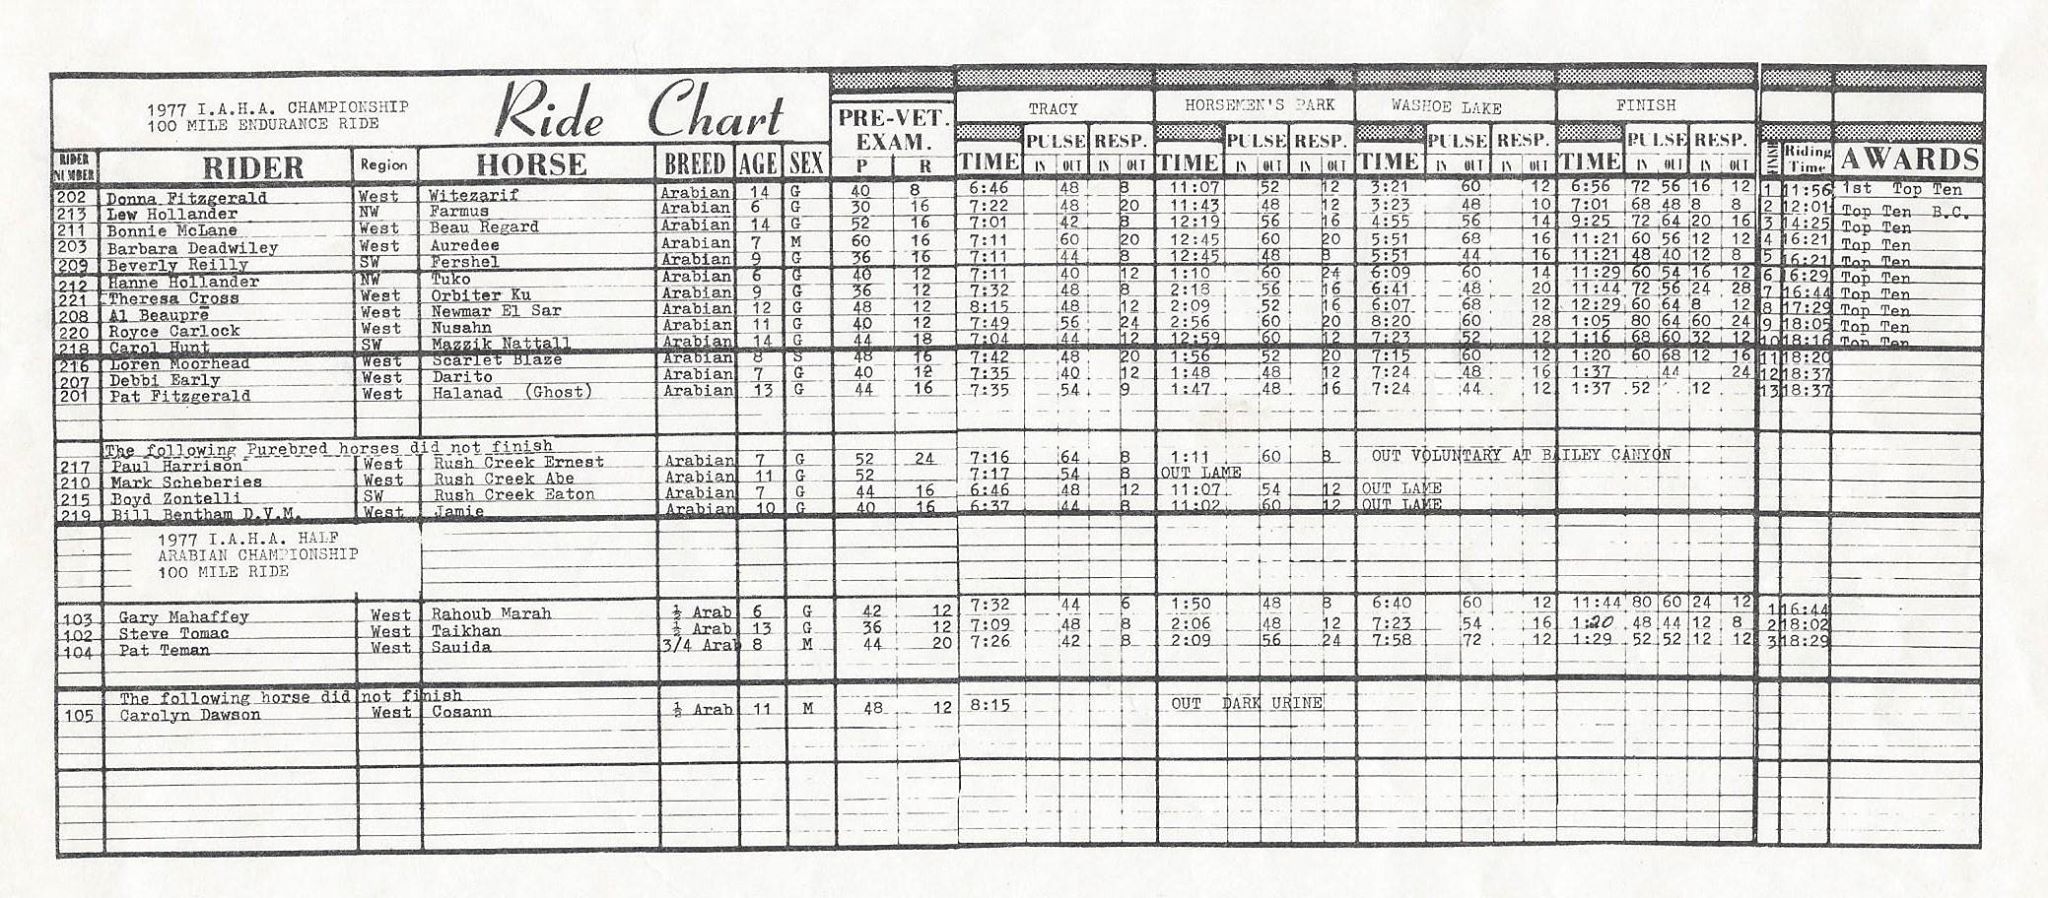 1977 I.A.H.A. CHAMPIONSHIP
100 MILE ENDURANCE RIDE
Ride Chart
PRE-VET. EXAM. TRACY HORSEMEN'S PARK WASHOE LAKE FINISH
PULSE RESP. PULSE RESP. PULSE RESP. PULSE RESP.
RIDER NUMBER RIDER Region HORSE BREED AGE SEX P R TIME IN OUT IN OUT TIME IN OUT IN OUT TIME IN OUT IN OUT TIME IN OUT IN OUT FINISH Riding Time AWARDS
202 Donna Fitzgerald West Witezarif Arabian 14 G 40 8 6:46 48 8 11:07 52 12 3:21 60 12 6:56 72 56 16 12 1 11:56 1st Top Ten
213 Lew Hollander NW Farmus Arabian 6 G 30 16 7:22 48 20 11:43 48 12 3:23 48 10 7:01 68 48 8 8 2 12:01 Top Ten B.C.
211 Bonnie McLane West Beau Regard Arabian 14 G 52 16 7:01 42 8 12:19 56 16 4:55 56 14 9:25 72 64 20 16 3 14:25 Top Ten
203 Barbara Deadwiley West Auredee Arabian 7 M 60 16 7:11 60 20 12:45 60 20 5:51 68 16 11:21 60 56 12 12 4 16:21 Top Ten
209 Beverly Reilly SW Fershel Arabian 9 G 36 16 7:11 44 8 12:45 48 8 5:51 44 16 11:21 48 40 12 8 5 16:21 Top Ten
212 Hanne Hollander NW Tuko Arabian 6 G 40 12 7:11 40 12 1:10 60 24 6:09 60 14 11:29 60 54 16 12 6 16:29 Top Ten
221 Theresa Cross West Orbiter Ku Arabian 9 G 36 12 7:32 48 8 2:18 56 16 6:41 48 20 11:44 72 56 24 28 7 16:44 Top Ten
208 Al Beaupre West Newmar El Sar Arabian 12 G 48 12 8:15 48 12 2:09 52 16 6:07 68 12 12:29 60 64 8 12 8 17:29 Top Ten
220 Royce Carlock West Nusahn Arabian 11 G 40 12 7:49 56 24 2:56 60 20 8:20 60 28 1:05 80 64 60 24 9 18:05 Top Ten
218 Carol Hunt SW Mazzik Nattall Arabian 14 G 44 18 7:04 44 12 12:59 60 12 7:23 52 12 1:16 68 60 32 12 10 18:16 Top Ten
216 Loren Moorhead West Scarlet Blaze Arabian 8 S 48 16 7:42 48 20 1:56 52 20 7:15 60 12 1:20 60 68 12 16 11 18:20
207 Debbi Early West Darito Arabian 7 G 40 12 7:35 40 12 1:48 48 12 7:24 48 16 1:37 44 24 12 18:37
201 Pat Fitzgerald West Halanad (Ghost) Arabian 13 G 44 16 7:35 54 9 1:47 48 16 7:24 44 12 1:37 52 12 13 18:37
The following Purebred horses did not finish
217 Paul Harrison West Rush Creek Ernest Arabian 7 G 52 24 7:16 64 8 1:11 60 8 OUT VOLUNTARY AT BAILEY CANYON
210 Mark Scheberies West Rush Creek Abe Arabian 11 G 52 7:17 54 8 OUT LAME
215 Boyd Zontelli SW Rush Creek Eaton Arabian 7 G 44 16 6:46 48 12 11:07 54 12 OUT LAME
219 Bill Bentham D.V.M. West Jamie Arabian 10 G 40 16 6:37 44 8 11:02 60 12 OUT LAME
1977 I.A.H.A. HALF
ARABIAN CHAMPIONSHIP
100 MILE RIDE
103 Gary Mahaffey West Rahoub Marah ½ Arab 6 G 42 12 7:32 44 6 1:50 48 8 6:40 60 12 11:44 80 60 24 12 1 16:44
102 Steve Tomac West Taikhan ½ Arab 13 G 36 12 7:09 48 8 2:06 48 12 7:23 54 16 1:20 48 44 12 8 2 18:02
104 Pat Teman West Sauida 3/4 Arab 8 M 44 20 7:26 42 8 2:09 56 24 7:58 72 12 1:29 52 52 12 12 3 18:29
The following horse did not finish
105 Carolyn Dawson West Cosann ½ Arab 11 M 48 12 8:15 OUT DARK URINE